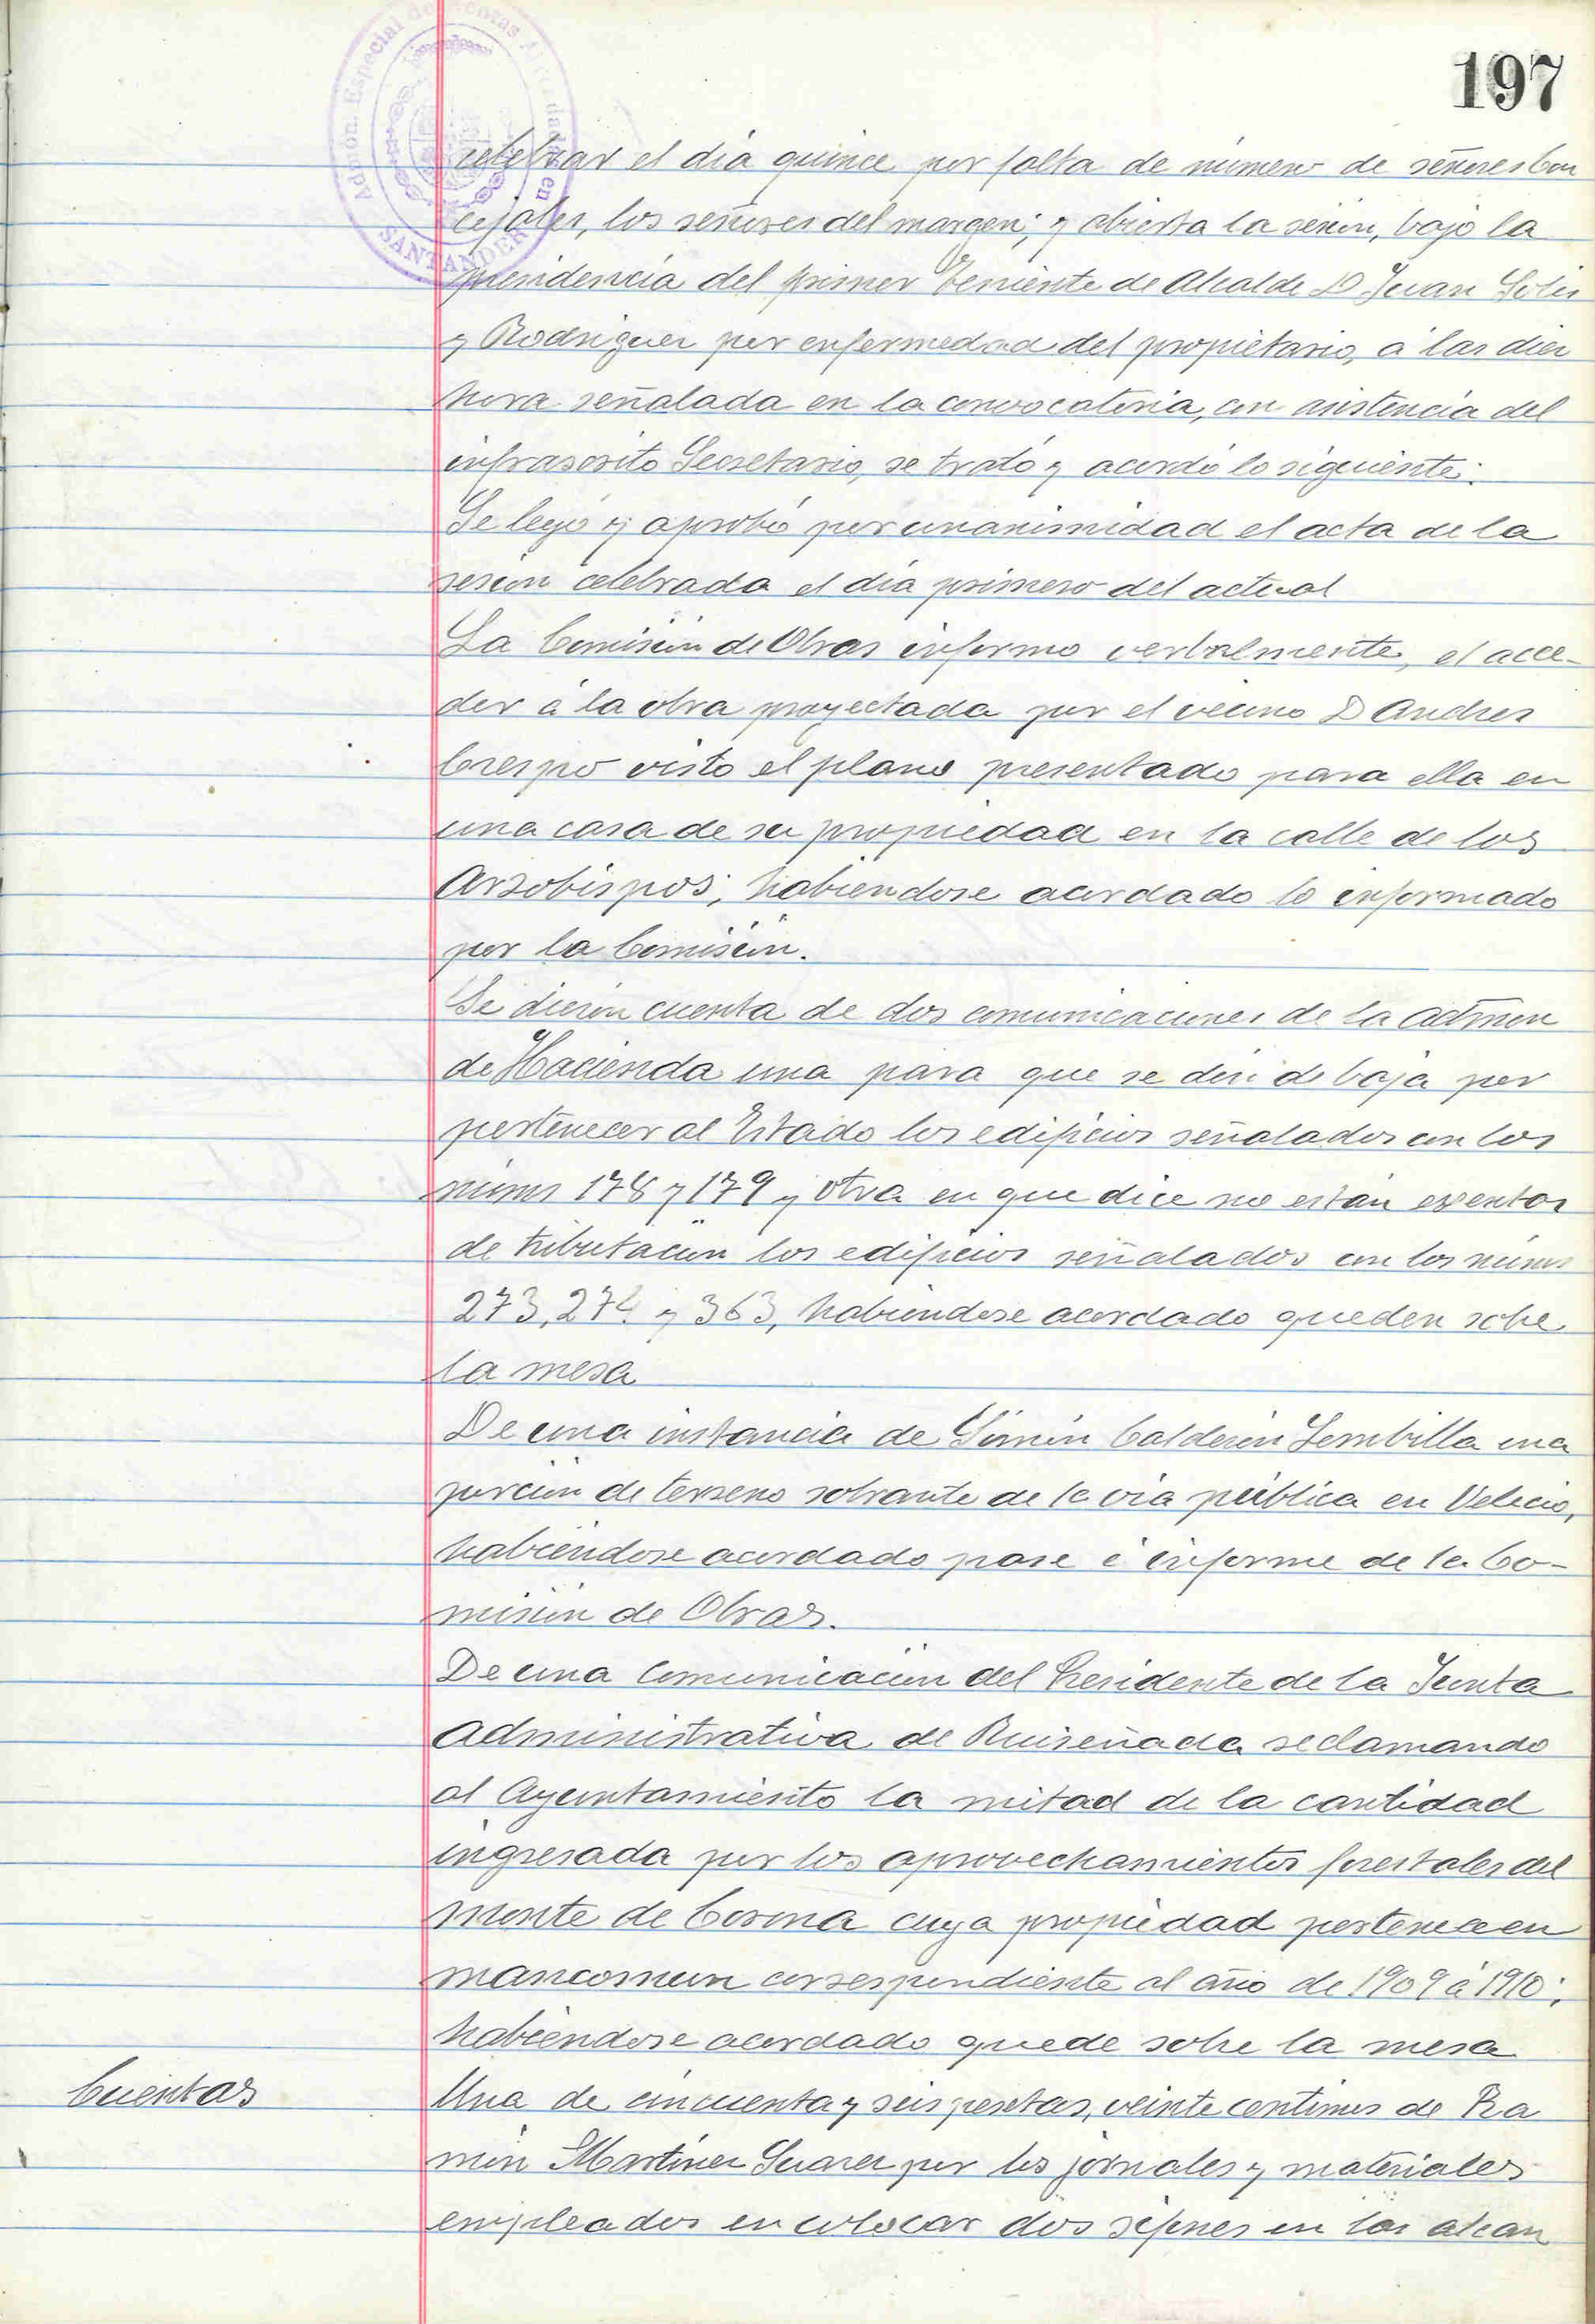 197
Admón. Especial de Rentas Arrendadas en
SANTANDER
celebrar el día quince por falta de número de señores Con
cejales, los señores del margen; y abierta la sesión, bajo la
presidencia del primer Teniente de Alcalde D Juan Solis
y Rodriguez por enfermedad del propietario, á las diez
hora señalada en la convocatoria, con asistencia del
infrascrito Secretario, se trató y acordó lo siguiente:
Se leyó y aprobó por unanimidad el acta de la
sesión celebrada el día primero del actual
La Comisión de Obras informo verbalmente, el acce-
der á la obra proyectada por el vecino D Andres
Crespo visto el plano presentado para ella en
una casa de su propiedad en la calle de los
Arzobispos; habiendose acordado lo informado
por la Comisión.
Se dieron cuenta de dos comunicaciones de la Admon
de Hacienda una para que se den de baja por
pertenecer al Estado los edificios señalados con los
núms 178 y 179 y otra en que dice no están exentos
de tributación los edificios señalados con los núms
273, 274 y 363, habiendose acordado queden sobre
la mesa
De una instancia de Simón Calderón una
porción de terreno sobrante de la via pública en Velecio,
habiéndose acordado pase á informe de la Co-
misión de Obras.
De una comunicación del Presidente de la Junta
administrativa de Ruiseñada reclamando
al Ayuntamiento la mitad de la cantidad
ingresada por los aprovechamientos forestales del
monte de Corona cuya propiedad pertenece en
mancomun correspondiente al año de 1909 á 1910;
habiéndose acordado quede sobre la mesa
Cuentas
Una de cincuenta y seis pesetas, veinte centimos de Ra
món Martinez Suarez por los jornales y materiales
empleados en colocar dos sifones en las alcan